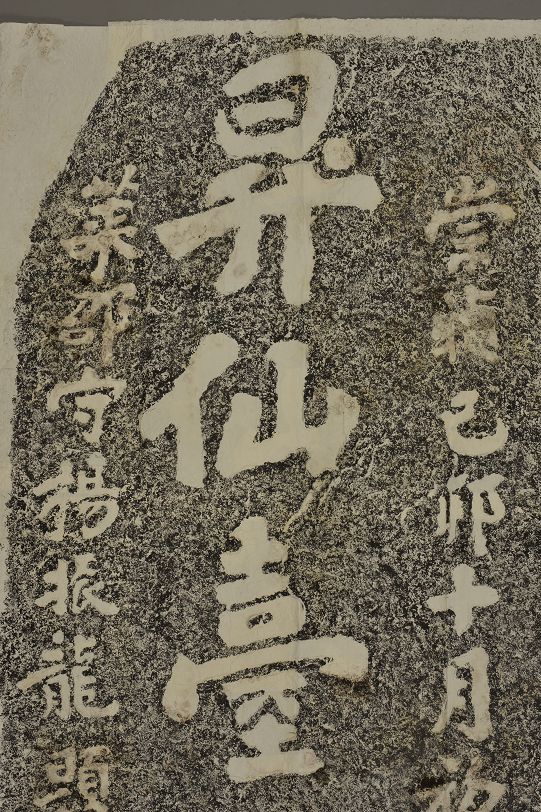 崇禎己卯十月
昇仙臺
萊郡守楊振龍題